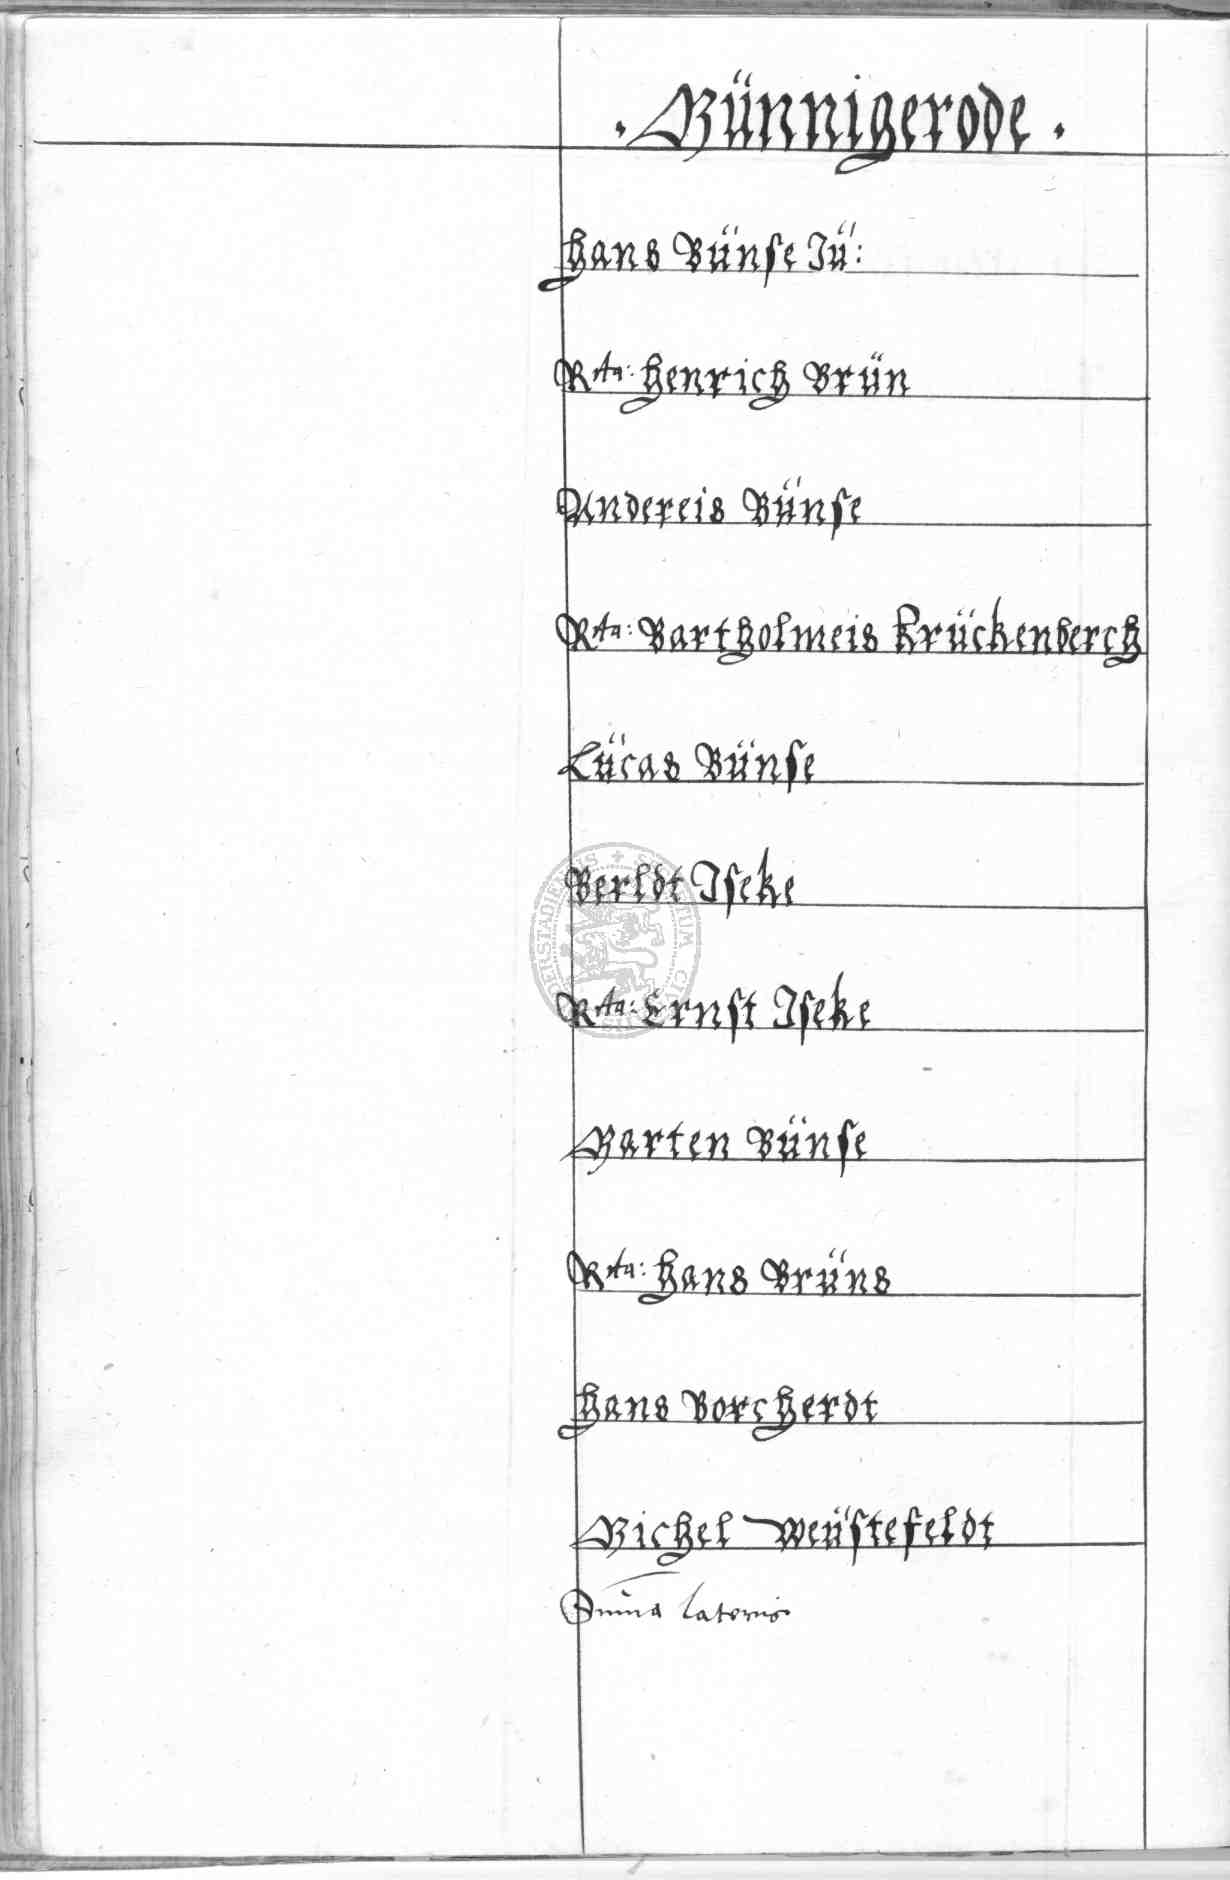 . Münnigerode .
Hans Bünse Jü:
Rta: Henrich Brün
Andereis Bünse
Rta: Bartholmeis Krückenberch
Lücas Bünse
Berldt Iseke
Rta: Ernst Iseke
Marten Bünse
Rta: Hans Brüns
Hans Borcherdt
Michel Weüstefeldt
Suma Lateris